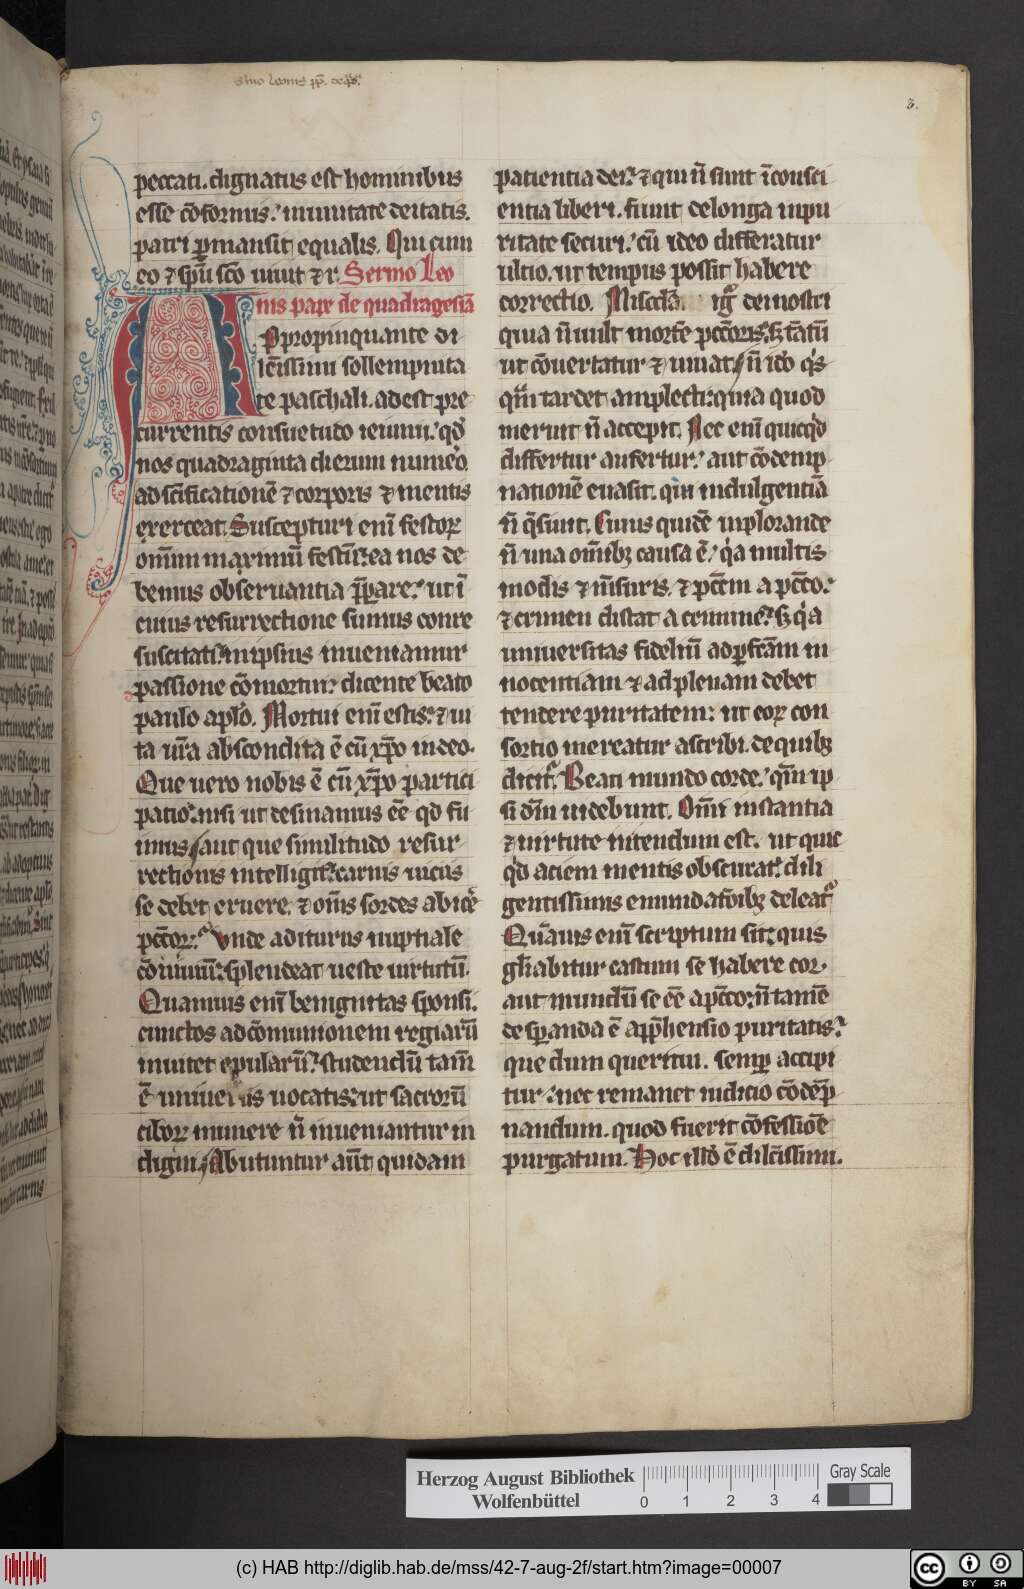 Sermo Leonis pp. de qͣdͬ.
3.
peccati. dignatus est hominibus
esse cōformis. inmutate deitatis.
patri ꝑmansit equalis. Qui cum
eo ⁊ spū sc̄o uiuit ⁊ r. Sermo Leo
nis pape de quadragesīa
APpropinquante di
lcēissimi sollempnita
te paschali. adest pre
currentis consuetudo ieiunii. qđ
nos quadraginta dierum numero.
ad sc̄ificationē ⁊ corporis ⁊ mentis
exerceat. Suscepturi enī festoꝝ
omīum maximū festū. ea nos de
bemus obseruantia p̄parare. ut ī
cuius resurrectione sumus conre
suscitati. in ipsius inueniamur
passione cōmortui. dicente beato
paulo apl̄o. Mortui enī estis. ⁊ ui
ta ur̄a abscondita ē cū xp̄o in deo.
Que uero nobis ē cū xp̄o partici
patio. nisi ut desinamus eē qđ fu
imus, aut que similitudo resur
rectionis intelligit᷑. carnis uicus
se debet eruere. ⁊ om̄s sordes abicē
pctōꝝ. Vnde adituris nuptiale
cōuiuiū. splendeat ueste uirtutū.
Quamuis enī benignitas sponsi.
cunctos ad cōmunionem regiarū
inuitet epularū. studendū tam̄
ē uniuersis uocatis. ut sacrorū
ciboꝝ munere n̄ inueniantur in
digni. Abutuntur aūt quidam
patientia dei. ⁊ qui n̄ sunt ī consci
entia liberi. fiunt de longa inpu
ritate securi. cū ideo differatur
ultio. ut tempus possit habere
correctio. igͥ demostri
quia n̄ uult mortē pctōris. sꝫ tātū
ut cōuertatur ⁊ uiuat, n̄ ido qͥs
qͣm tardet amplecti. quia quod
meruit n̄ accepit. Nec enī quicqͥđ
differtur aufertur. aut cōdemp
nationē euasit. qui indulgentiā
n̄ q̄siuit. Cuius quidē inplorande
n̄ una om̄ibꝫ causa ē. qͥa multis
modis ⁊ m̄suris. ⁊ pctm̄ a pctō.
⁊ crimen distat a crimine. sꝫ qͥa
uniuersitas fideliū ad ꝑfcām in
nocentiam ⁊ ad plenam debet
tendere puritatem. ut eoꝝ con
sortio mereatur ascribi. de quibꝫ
dicit᷑. Beati mundo corde. qm̄ ip
si dm̄ uidebunt. Om̄i instantia
⁊ uirtute nitendum est. ut quic
qđ aciem mentis obscurat. dili
gentissimis emundatōibꝫ deleat᷑
Quāuis enī scriptum sit. quis
gl̄iabitur castum se habere cor.
aut mundū se eē a pctō. n̄ tamē
desꝑanda ē app̄hensio puritatis.
que dum queritur. semꝑ accipi
tur. nec remanet iudicio cōdēp
nandum. quod fuerit cōfessiōe
purgatum. Hoc illđ ē dilc̄issimi.
Herzog August Bibliothek
Wolfenbüttel
0 1 2 3 4
Gray Scale
(c) HAB http://diglib.hab.de/mss/42-7-aug-2f/start.htm?image=00007
cc BY SA